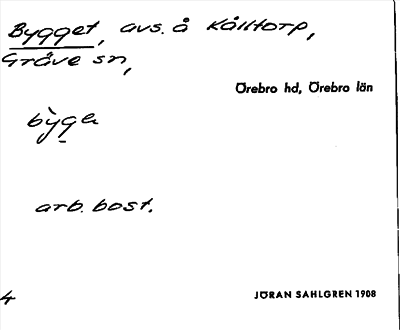 Bygget, avs. å Kålltorp,
Gräve sn,
Örebro hd, Örebro län
bỳgɐ
arb. bost.
4
JÖRAN SAHLGREN 1908